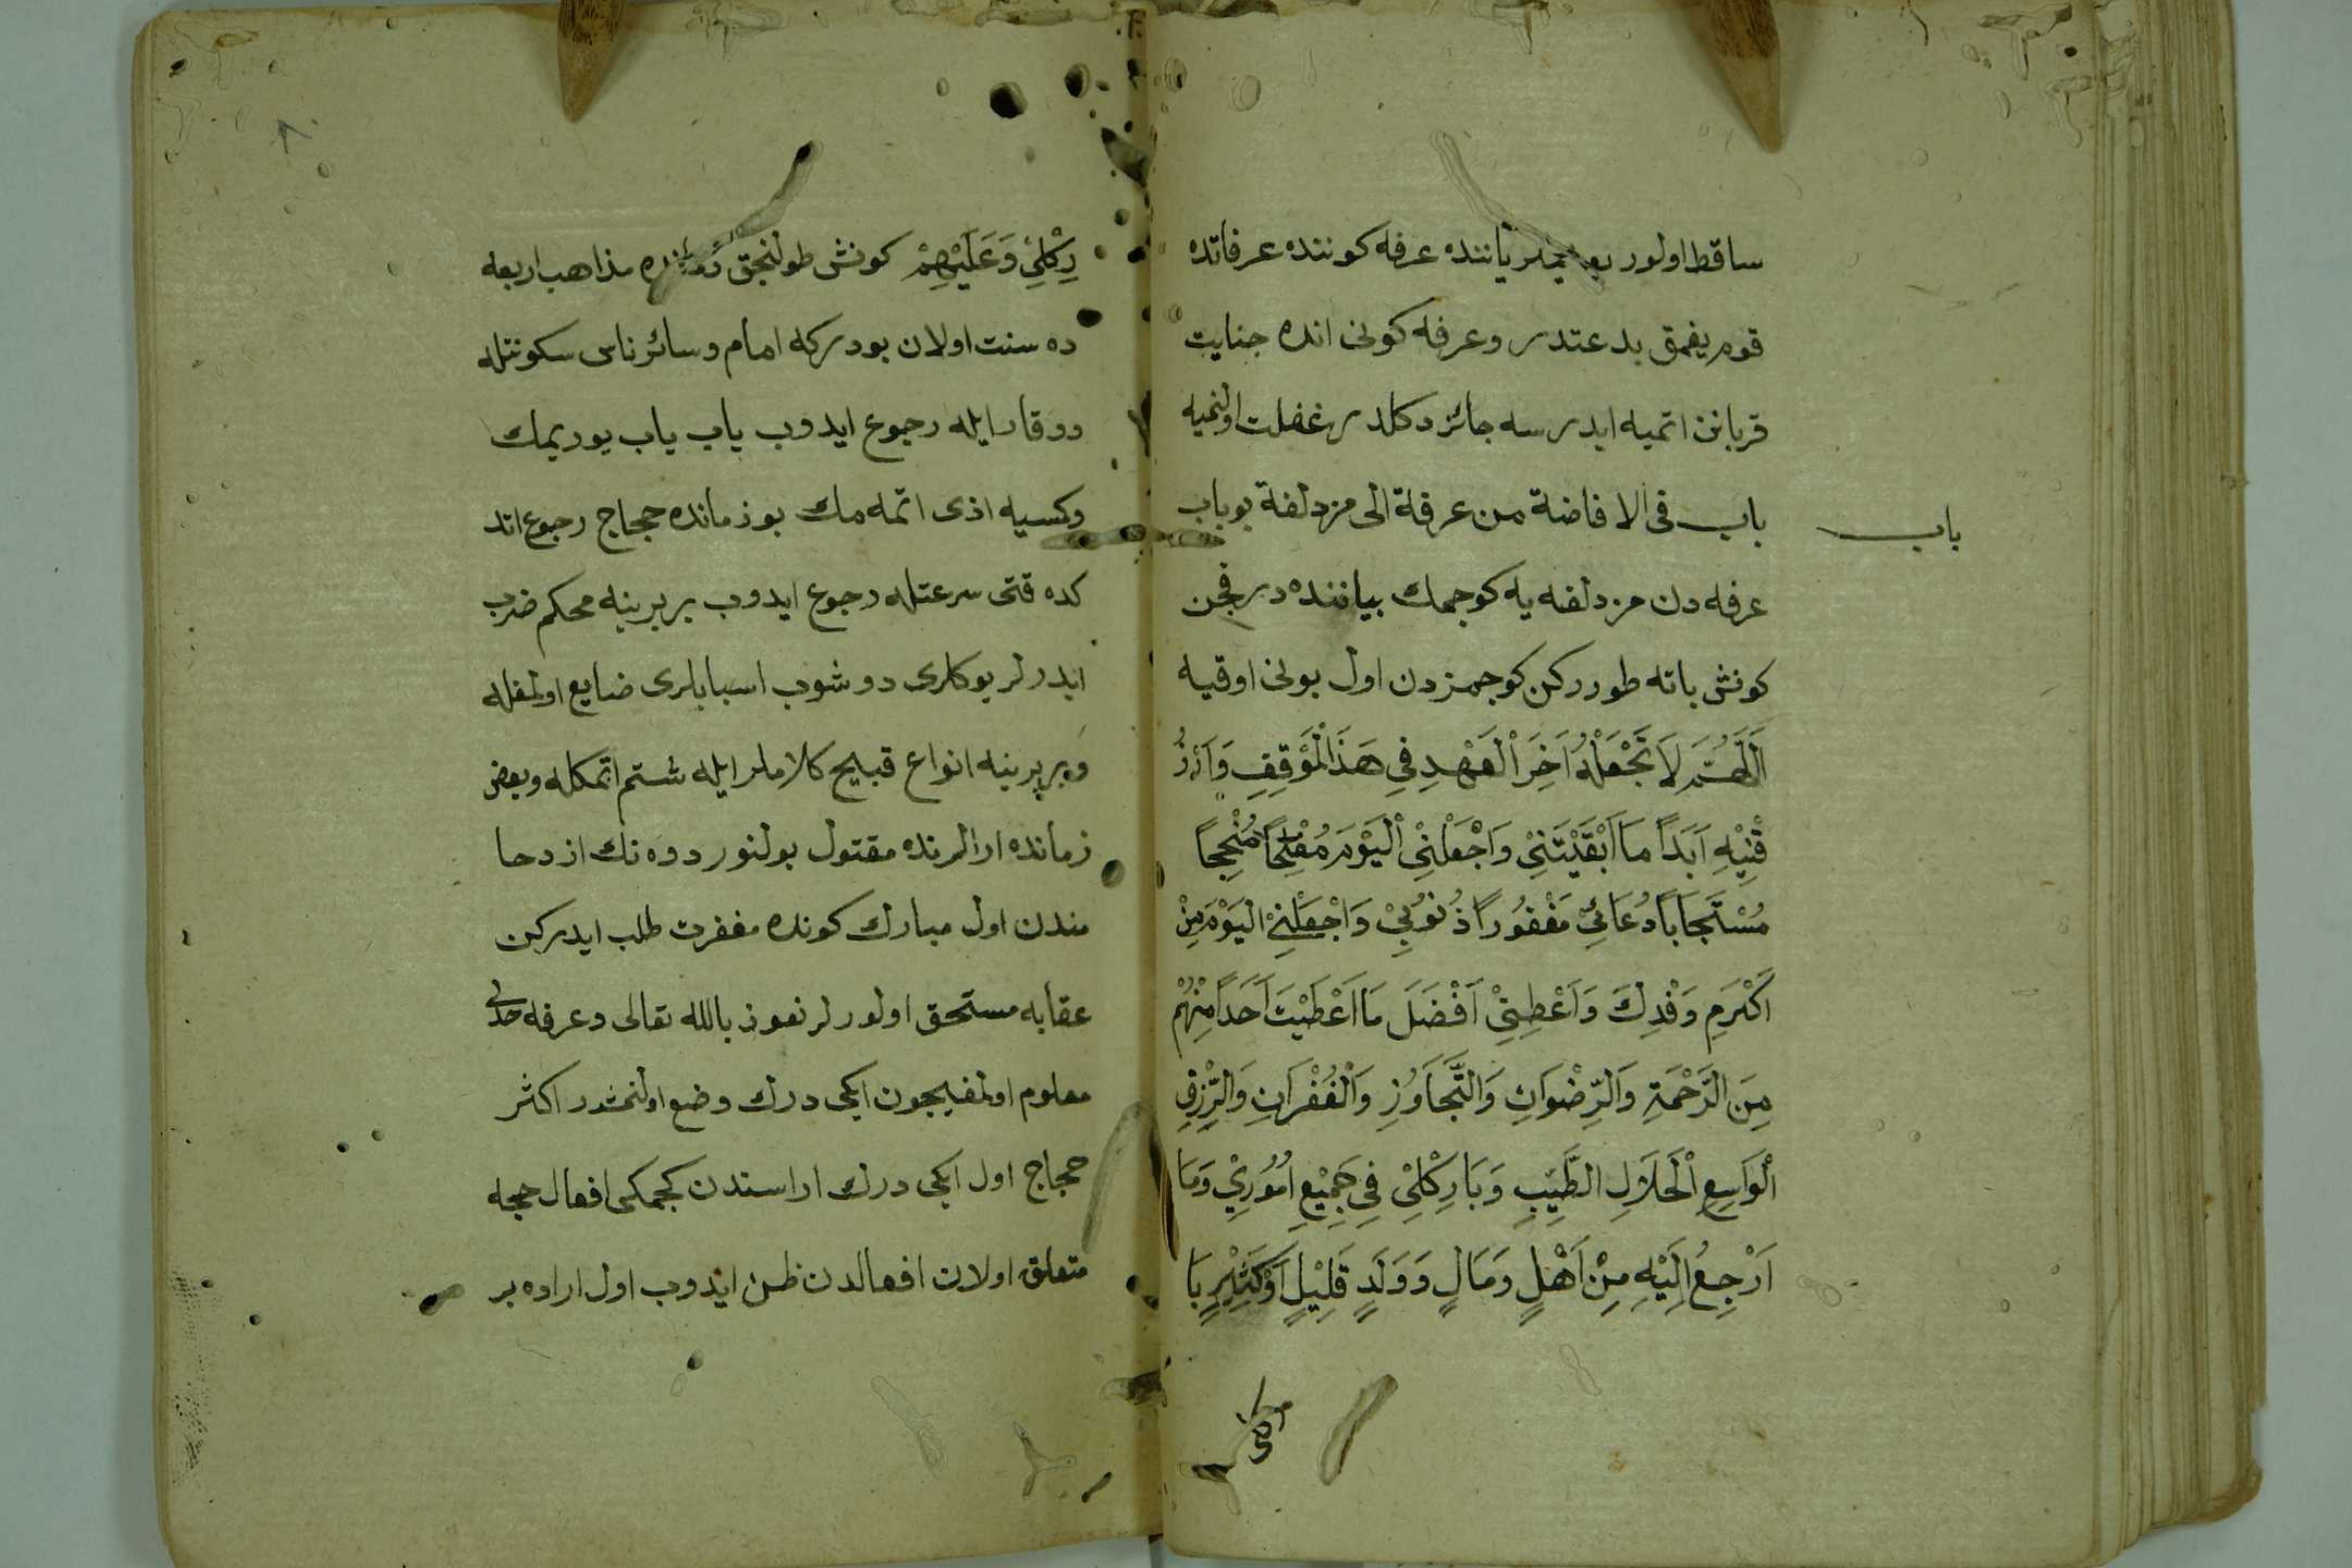 ساقط اولور یاننده عرفه كوننده عرفاتده
قوم یغمق بدعتدر وعرفه كونی انده جنایت
قربانن اتمیه ایدرسه جائز دكلدر غفلت اولنمیه
باب
باب فی الافاضة من عرفة الی مزدلفة بو باب
عرفه دن مزدلفه یه كوچمك بیاننده در قچن
كونش باته طوررکن كوچمزدن اول بونی اوقیه
اَللّٰهُمَّ لَا تَجْعَلْهُ اَخِرَ الْعَهْدِ فِي هَذَا الْمَوْقِفِ وَارْزُ
قْنِيْهِ اَبَداً مَا اَبْقَيْتَنِيْ وَاجْعَلْنِيْ الْيَوْمَ مُفْلِحًا مُنْجِحًا
مُسْتَجَاباً دُعَائِيْ مَغْفُوراً ذُنُوْبِيْ وَاجْعَلْنِيْ الْيَوْمَ مِنْ
اَكْرَمِ وَفْدِكَ وَاَعْطِنِيْ اَفْضَلَ مَا اَعْطَيْتَ اَحَدًا مِنْهُمْ
مِنَ الرَّحْمَةِ وَالرِّضْوَانِ وَالتَّجَاوُزِ وَالْغُفْرَانِ وَالرِّزْقِ
الْوَاسِعِ الْحَلَالِ الطَّيِّبِ وَبَارِكْ لِيْ فِي جَمِيْعِ اُمُوْرِيْ وَمَا
اَرْجِعُ اِلَيْهِ مِنْ اَهْلٍ وَمَالٍ وَوَلَدٍ قَلِيْلٍ اَوْ كَثِيْرٍ بَا
رِكْ لِيْ وَعَلَيْهِمْ كونش طولنجق مذاهب اربعه
ده سنت اولان بودركه امام وسائر ناس سكونتله
ووقار ایله رجوع ایدوب یاب یاب یوریمك
وكسیه اذی اتمه مك بوزمانده حجاج رجوع اتد
كده قتی سرعتله رجوع ایدوب بربرینه محكم ضرب
ایدرلر یوكلری دوشوب اسبابلری ضایع اولمغله
وبربرینه انواع قبیح كلاملر ایله شتم اتمكله وبعض
زمانده ارالرنده مقتول بولنور دوه نك ازدحا
مندن اول مبارك كونده مغفرت طلب ایدركن
عقابه مستحق اولورلر نعوذ بالله تعالی وعرفه حدی
معلوم اولمغیچون ایكی درك وضع اولنمشدر اكثر
حجاج اول ایكی درك اراسندن كچمكی افعال حجه
متعلق اولان افعالدن ظن ایدوب اول اراده بر